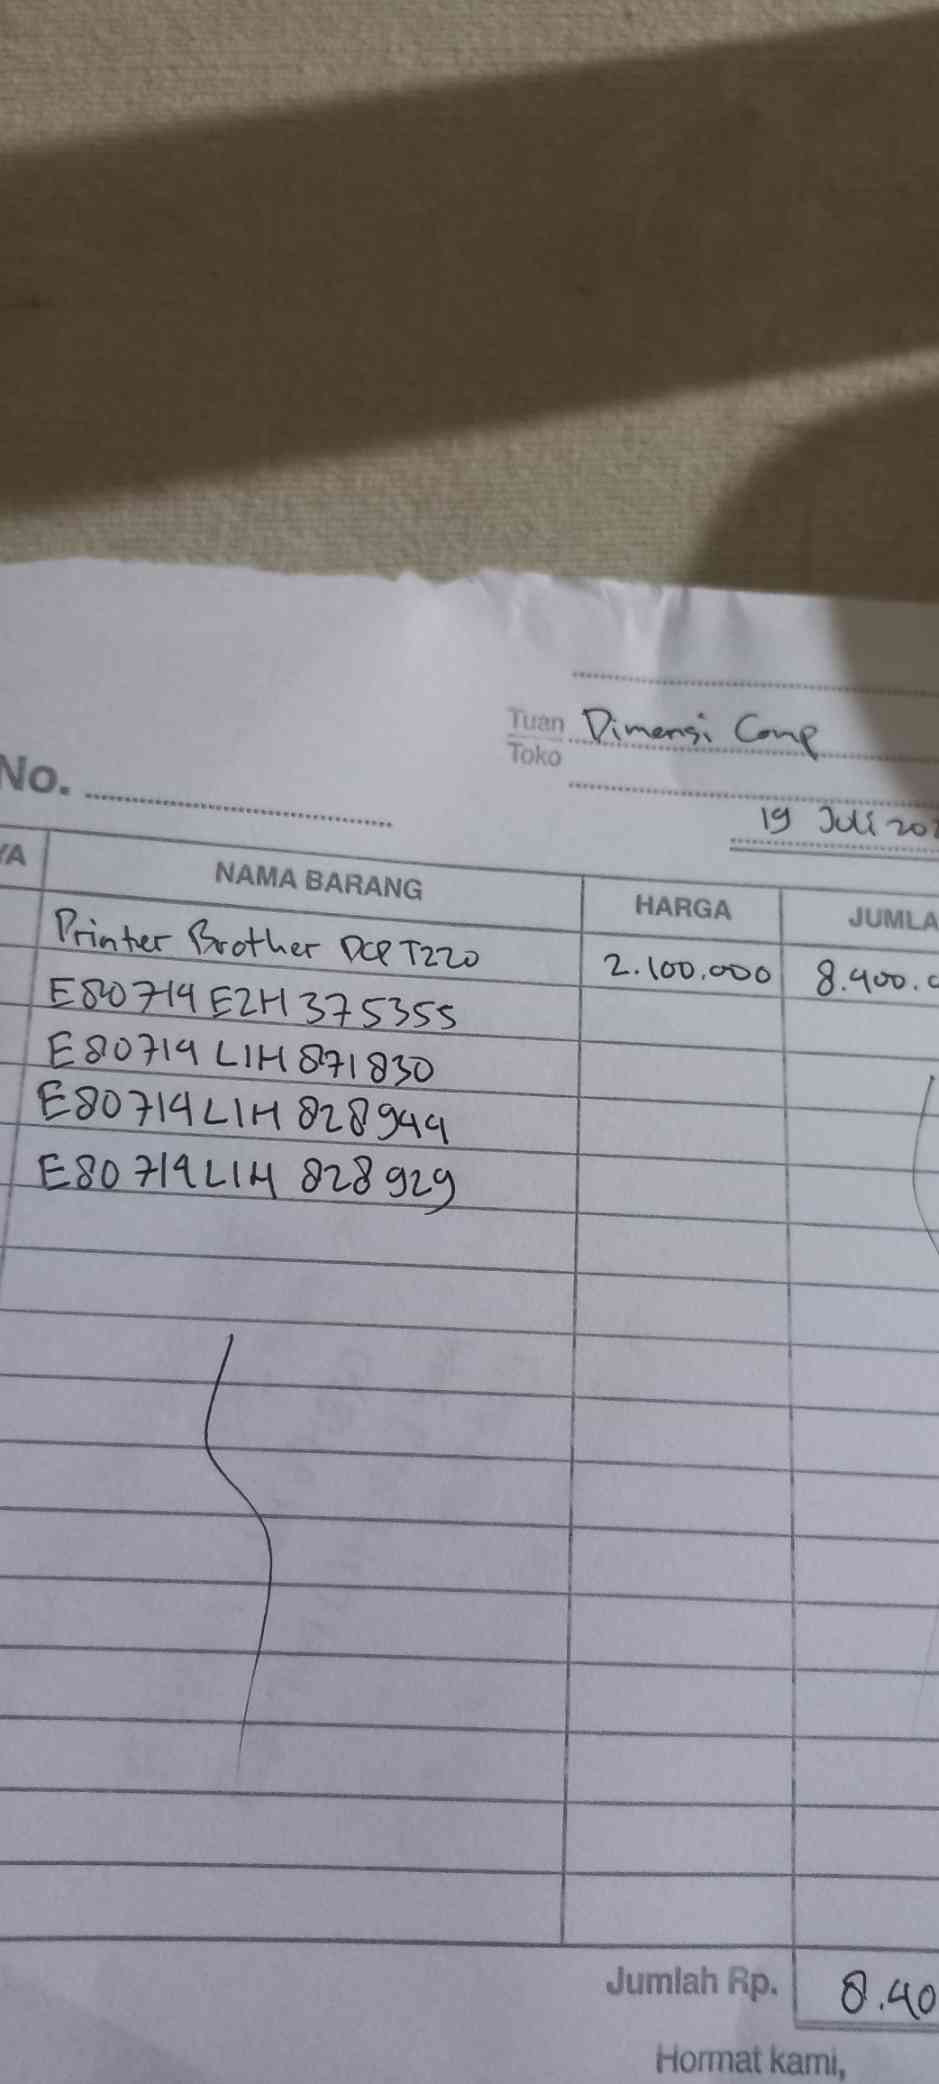 Tuan Dimensi Comp
Toko
No.
19 Juli 20
YA NAMA BARANG HARGA JUMLA
Printer Brother DCP T220 2.100.000 8.400.0
E80714E2H375355
E80714L1H871830
E80714L1H828944
E80714L1H828929
Jumlah Rp. 8.40
Hormat kami,